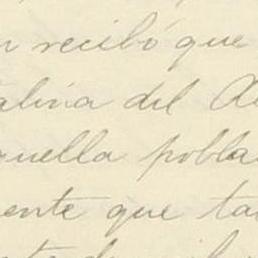 n recibó que
alina del A
quella pobla
ente que ta